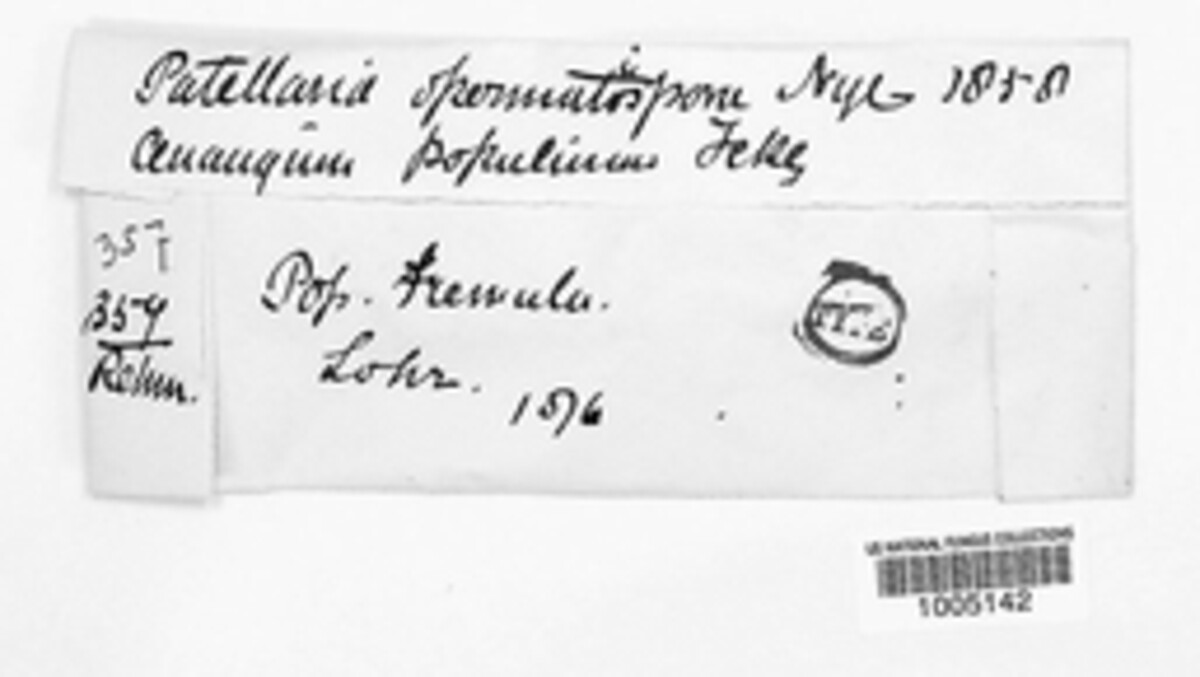 Patellaria spermatospora Nyl 1858
Cenangium populinum Fckl
357
Pop. tremula.
359
Rehm.
Lohr.
1876
US NATIONAL FUNGUS COLLECTIONS
1005142